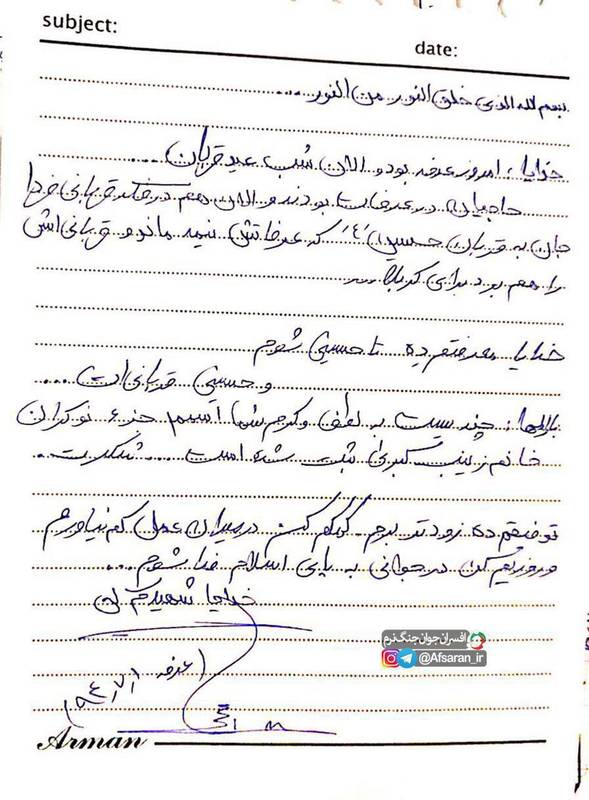 subject:
date:
بسم الله الذی خلق النور من النور ...
خدایا، امروز عرفه بود و الان شب عید قربان ....
حاجیان در عرفات بودند و الان هم در فکر قربانی فردا
جان به قربان حسین (ع) که عرفاتش نیمه ماند و قربانی‌اش
را هم بود برای کربلا ....
خدایا معرفتم ده تا حسینی شوم
و حسینی قربانی‌ات ....
بارالها، چندیست به لطف و کرم شما اسمم جزء نوکران
خانم زینب کبری ثبت شده است ... شکرت ..
توفیقم ده زودتر بروم. کمکم کن در میدان عمل کم نیاورم
و روزیم کن در جوانی به پای اسلام فدا شوم ...
خدایا شهیدم کن
افسران جوان جنگ نرم
@Afsaran_ir
عرفه ۹۴٫۷٫۱
Arman